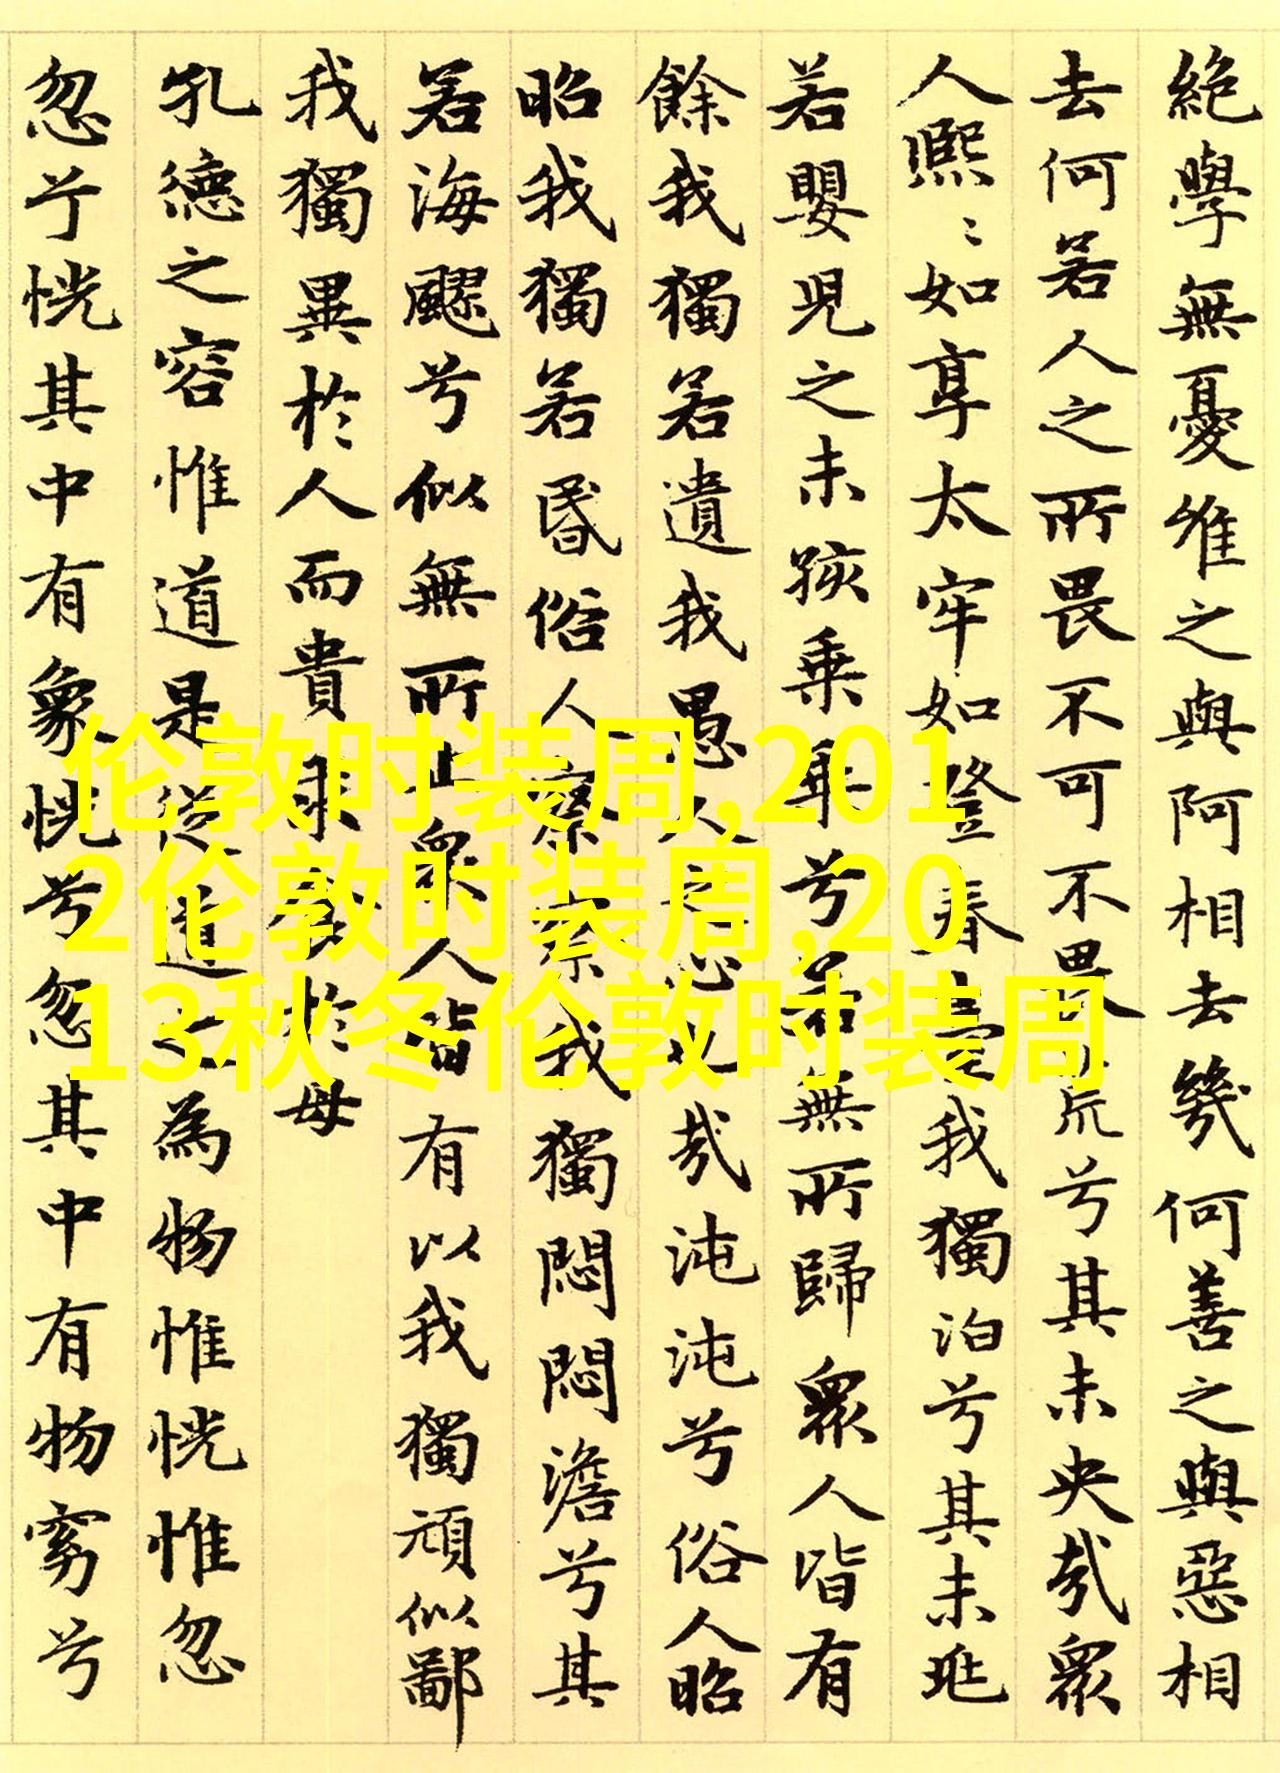 絶學無憂唯之與阿相去幾何善之與惡相
去何若人之所畏不可不畏荒兮其未央哉眾
人熙〻如享太牢如登春臺我獨泊兮其未兆
若嬰兒之未孩乗乗兮若無所歸眾人皆有
餘我獨若遺我愚人之心也哉沌沌兮俗人昭
昭我獨若昬俗人察察我獨悶悶澹兮其
若海飂兮似無所止眾人皆有以我獨頑似鄙
我獨異於人而貴求食於母
孔德之容惟道是從道之為物惟恍惟忽
忽兮恍其中有象恍兮忽其中有物窈兮
伦敦时装周,201
2伦敦时装周,20
13秋冬伦敦时装周